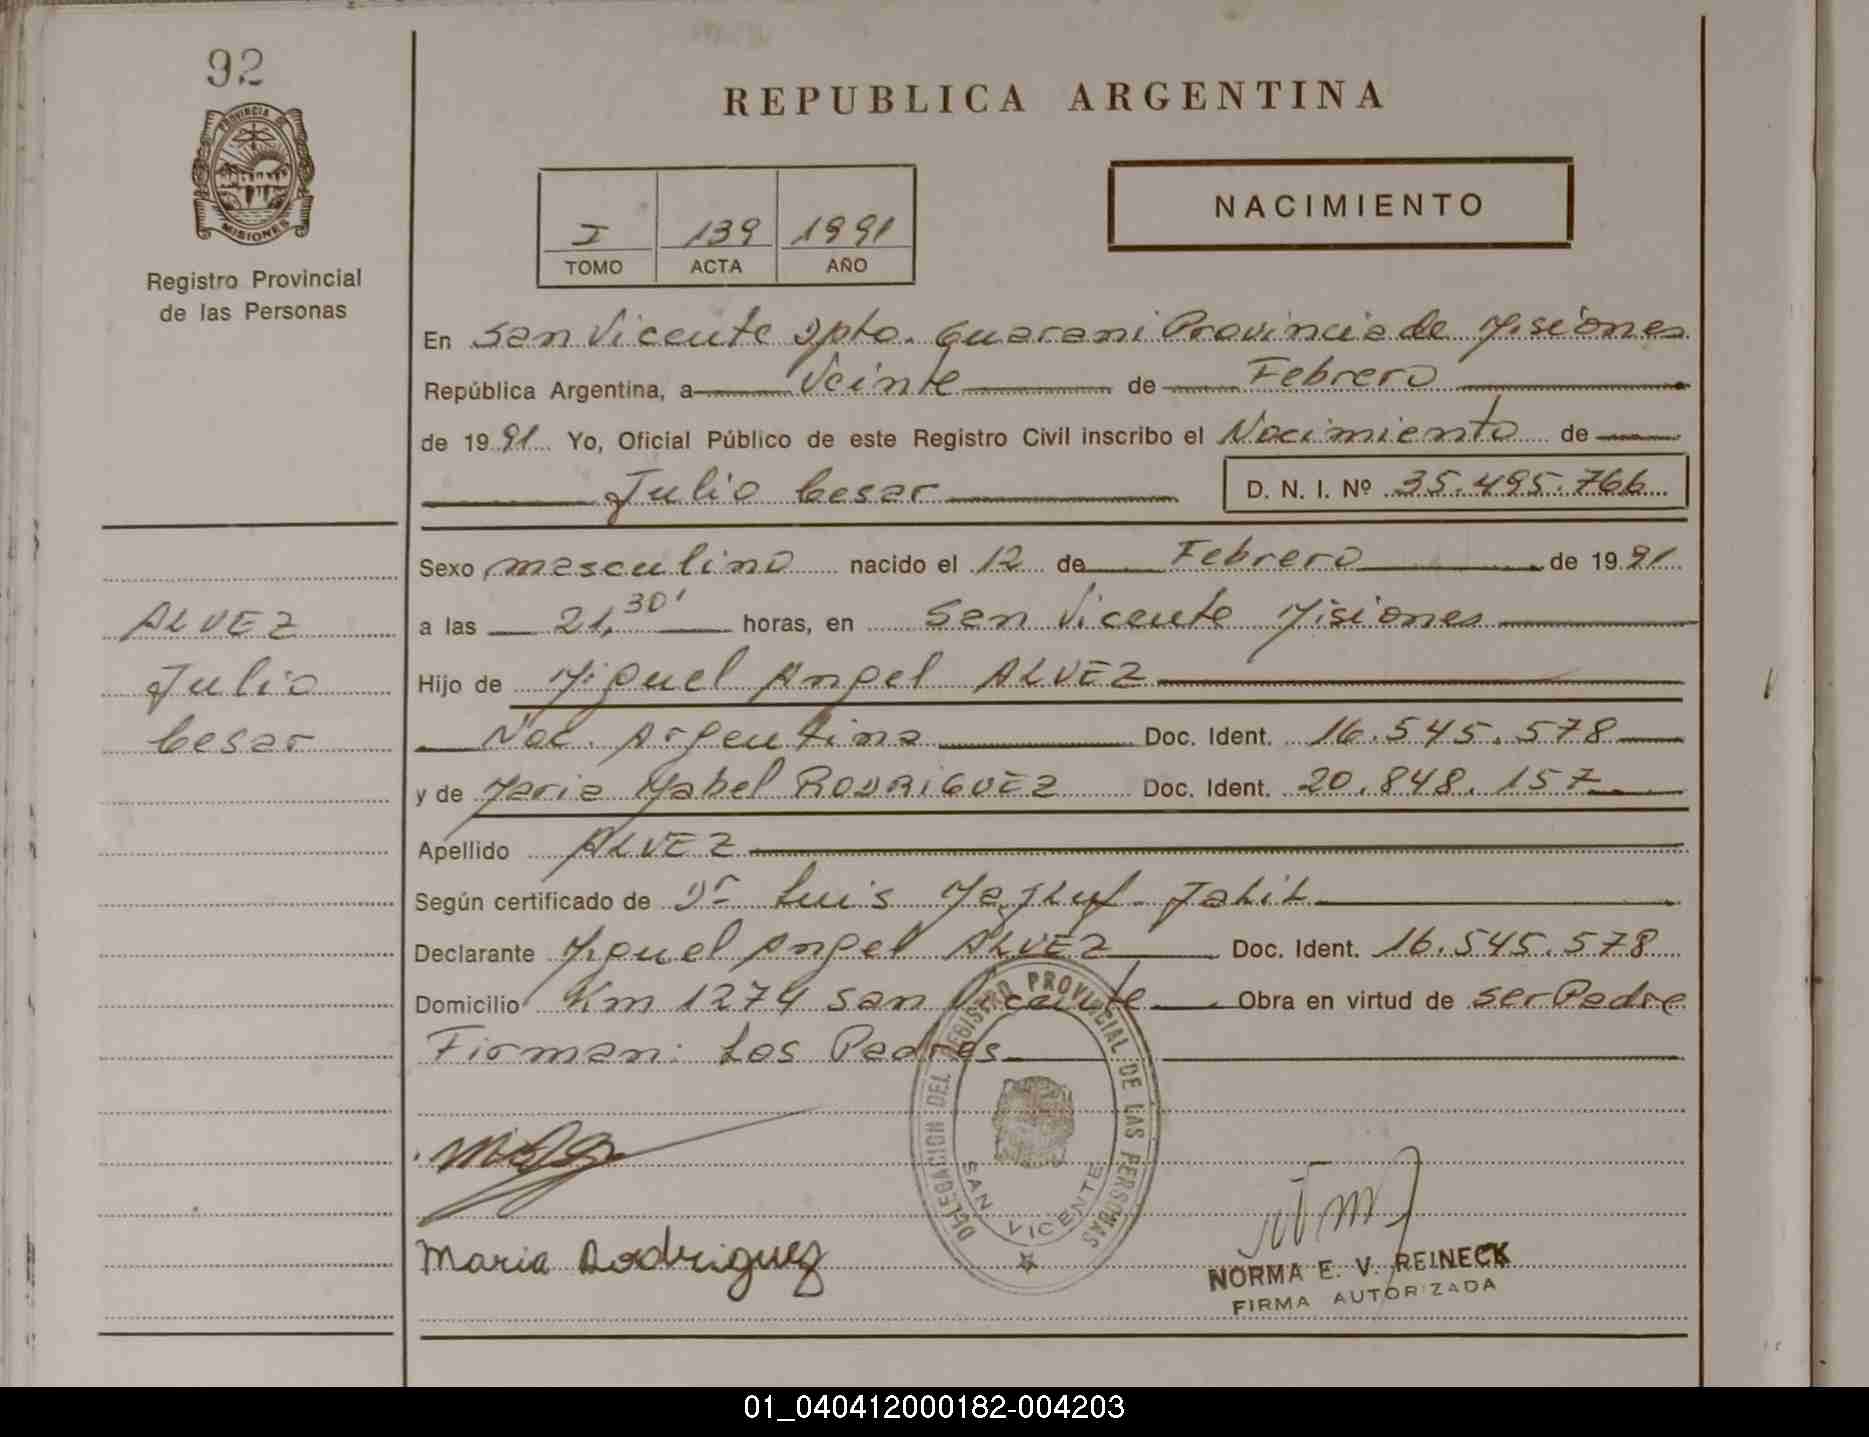 92
PROVINCIA DE
MISIONES
Registro Provincial
de las Personas
REPUBLICA ARGENTINA
I 139 1991
TOMO ACTA AÑO
NACIMIENTO
En San Vicente Dpto. Guarani Provincia de Misiones
República Argentina, a Veinte de Febrero
de 1991 Yo, Oficial Público de este Registro Civil inscribo el Nacimiento de
Julio Cesar D. N. I. Nº 35.495.766
Sexo masculino nacido el 12 de Febrero de 1991
ALVEZ
a las 21,30' horas, en San Vicente Misiones
Julio
Hijo de Miguel Angel ALVEZ
Cesar
Nac. Argentina Doc. Ident. 16.545.578
y de Maria Ysabel RODRIGUEZ Doc. Ident. 20.848.157
Apellido ALVEZ
Según certificado de Dr Luis
Declarante Miguel Angel ALVEZ Doc. Ident. 16.545.578
Domicilio Km 1274 San Vicente Obra en virtud de ser Padre
Firman: Los Padres
DELEGACION DEL REGISTRO PROVINCIAL DE LAS PERSONAS
SAN VICENTE
Maria Rodriguez
NORMA E. V. REINECK
FIRMA AUTORIZADA
01_040412000182-004203